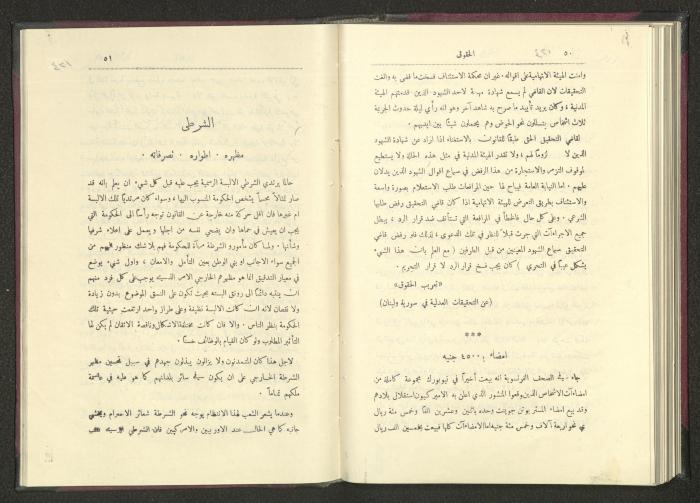 ٥٠
الحقوقي
وامنت الهيئة الاتهامية على اقواله. غير ان محكمة الاستئناف فسخت ما قضي به والغت
التحقيقات لان القاضي لم يسمع شهادة مهمة لاحد الشهود الذين قدمتهم الهيئة
المدنية ، وكان يريد تأييد ما صرح به شاهد آخر وهو انه رأي ليلة حدوث الجريمة
ثلاث اشخاص يتسللون نحو الحوض وهم يحملون شيئاً بين ايديهم .
لقاضي التحقيق الحق طبقاً للقانون بالاستغناء اذا اراد عن شهادة الشهود
الدين لا لزوماً لهم ، ولا تقدر الهيئة المدنية في مثل هذه الحالة ولا يستطيع
لموقوف التزمر والاستجارة من هذا الرفض في سماع اقوال الشهود الذين يدلان
عليهم . اما النيابة العامة فيباح لها حين المرافعات طلب الاستعلام بصورة واسعة
والاستئناف بطريق التعرض للهيئة الاتهامية اذا كان قاضي التحقيق رفض طلبها
الشرعي . وعلى كل حال فالخطأ في المرافعة التي تستأنف ضد قرار الرد ، يبطل
جميع الاجراءآت التي جرت قبلاً للنظر في تلك الدعوى ، لذلك فلو رفض قاضي
التحقيق سماع الشهود المعينين من قبل الطرفين ( مع العلم بان هذا الشيء
يشكل عيباً في التحري ) كان يجب فسخ قرار الرد لا قرار التجريم .
«تعريب الحقوق»
(عن التحقيقات العدلية في سورية ولبنان)
***
امضاء بـ ٤٥٠٠ جنيه
جاء في الصحف الفرنسوية انه بيعت أخيراً في نيويورك مجموعة كاملة من
امضاءآت الاشخاص الذين وقعوا المنشور الذي اعلن به الاميركيون استقلال بلادهم
وقد بيع امضاء المستر بوتن جوينت وحده باثنين وعشرين الفاً وخمس مئة ريال
اي نحو اربعة آلاف وخمس مئة جنيه اما الامضاءآت كلها فبيعت بخمسين الف ريال
٥١
الشرطي
مظهره . اطواره . تصرفاته .
حالما يرتدي الشرطي الالبسة الرسمية يجب عليه قبل كل شيء ان يعلم بانه قد
صار تمثالاً مجسماً يشخص الحكومة المنسوب اليها ، وسواء كان مرتدياً تلك الالبسة
ام غيرها فان اقل حركة منه خارجة عن القانون توجه رأساً الى الحكومة التي
يجب ان يعيش في حماها وان يضحي نفسه من اجلها ويعمل على اعلاء شرفها
وشأنها . ولما كان مأمورو الشرطة مرآة للحكومة فهم بلا شك منظور اليهم من
الجميع سواء الاجانب او بني الوطن بعين التأمل والامعان ، واول شيء يوضع
في معيار التدقيق انما هو مظهرهم الخارجي الامر الذي يوجب على كل فرد منهم
ان ينتبه دائماً الى رونق البسته بحيث تكون على النسق الموضوع بدون زيادة
ولا نقصان لانه ان كانت الالبسة نظيفة وعلى طراز واحد ارتفعت حيثية تلك
الحكومة بنظر الناس . والا فان كانت مختلفة الاشكال وناقصة الاتقان لم يكن لها
التأثير المطلوب ولو كان القيام بالوظائف حسناً .
لاجل هذا كان المتمدنون ولا يزالون يبذلون جهدهم في سبيل تحسين مظهر
الشرطة الخارجي على ان يكون في سائر بلدانهم كما هو عليه في عاصمة
ملكهم تماماً .
وعندما يشعر الشعب لهذا الانتظام يوجه نحو الشرطة شعائر الاحترام ويخشى
جانبه كما هي الحال عند الاوربيين والاميركيين فان الشرطي